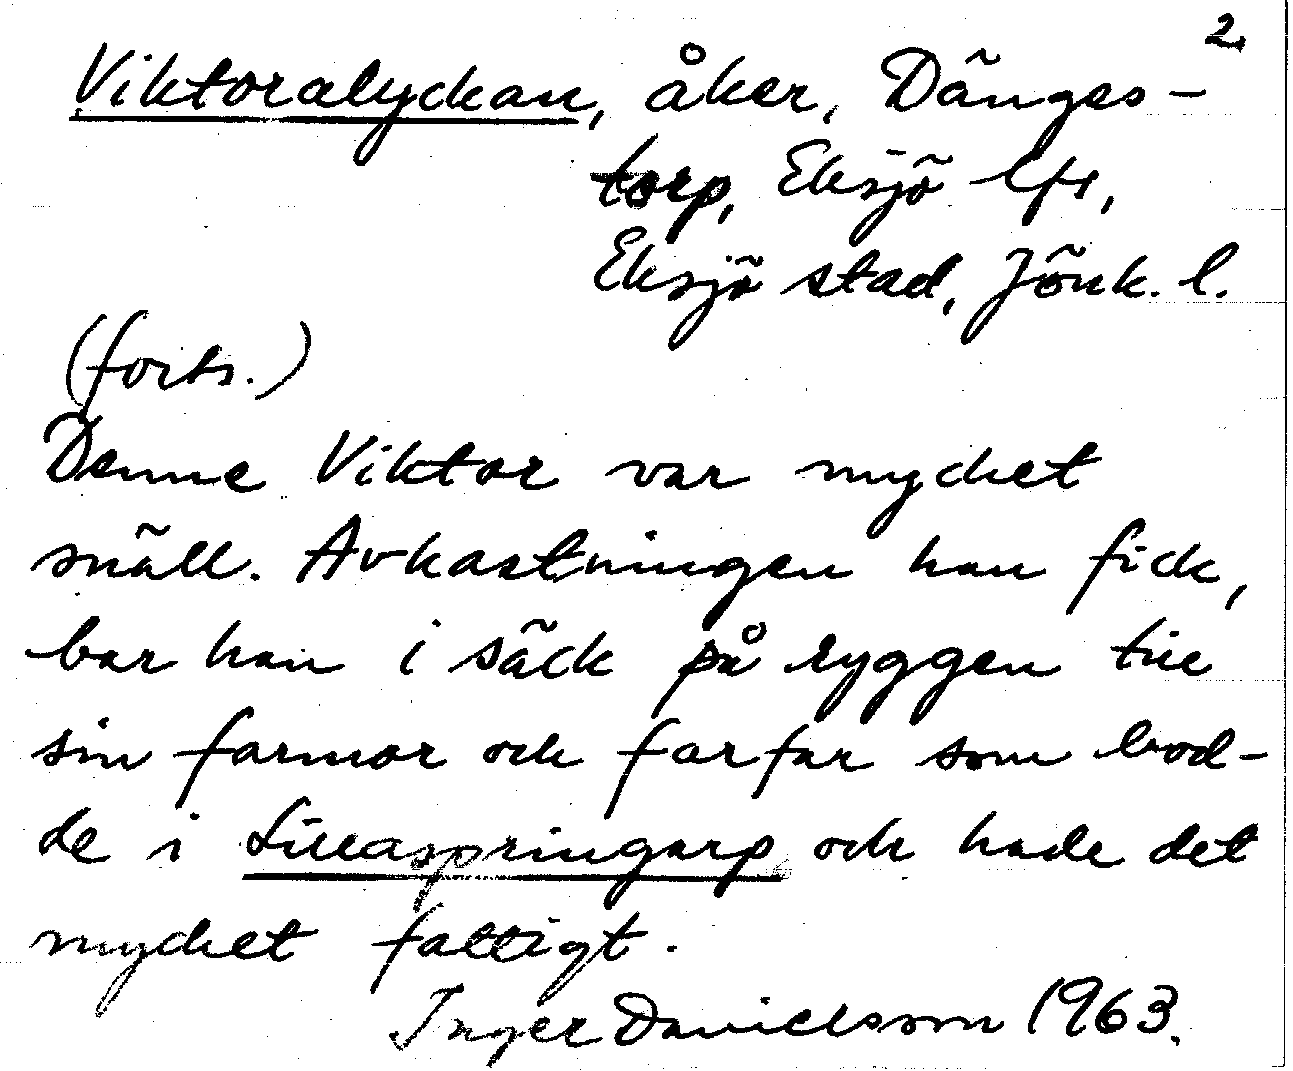 2.
Viktoralyckan, åker, Dänges-
torp, Eksjö lfs,
Eksjö stad, Jönk. l.
(forts.)
Denne Viktor var mycket
snäll. Avkastningen han fick,
bar han i säck på ryggen till
sin farmor och farfar som bod-
de i Lillaspringarp och hade det
mycket fattigt.
Inger Danielsson 1963.